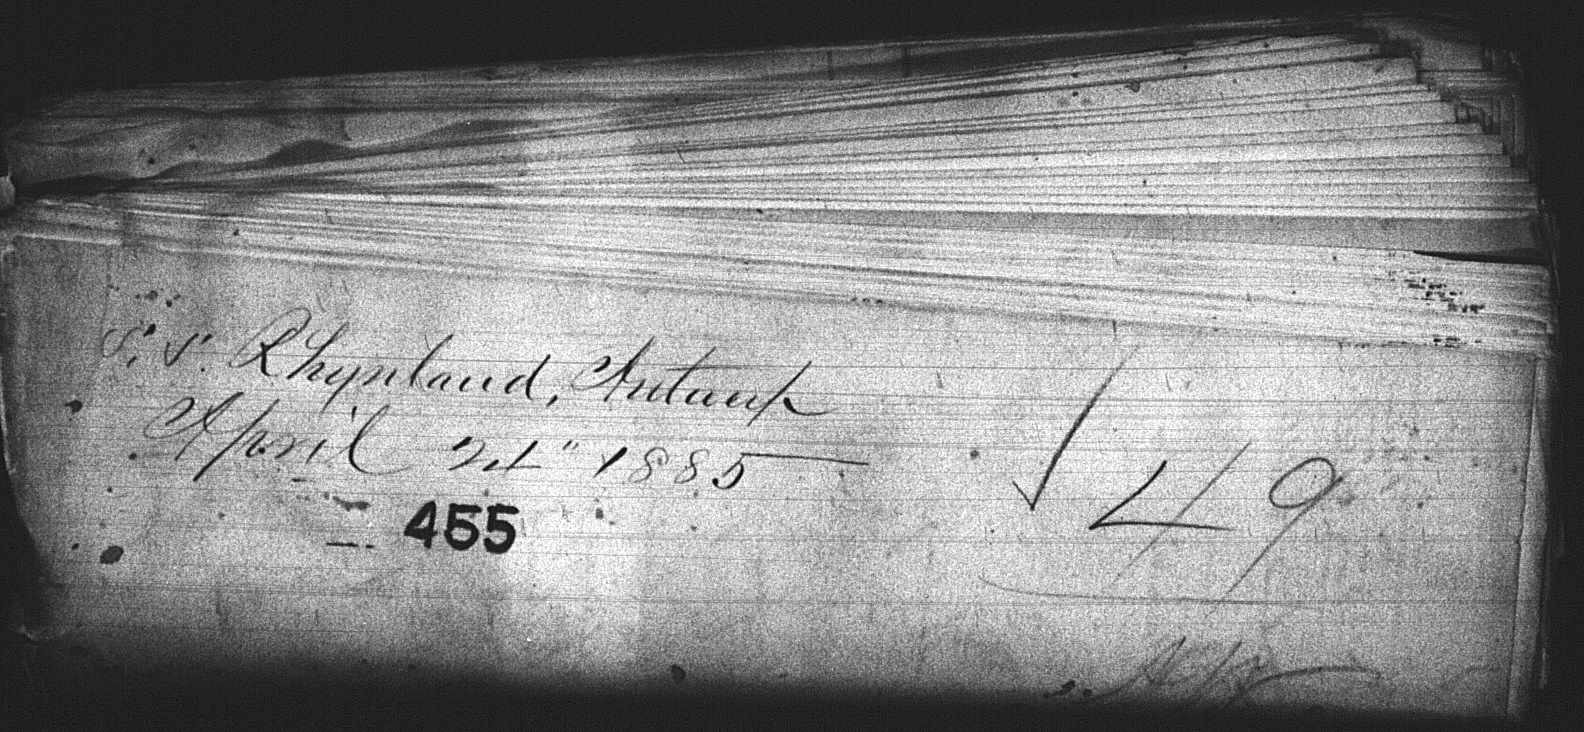 S. S. Rhynland, Antwerp
April 21" 1885
455
49